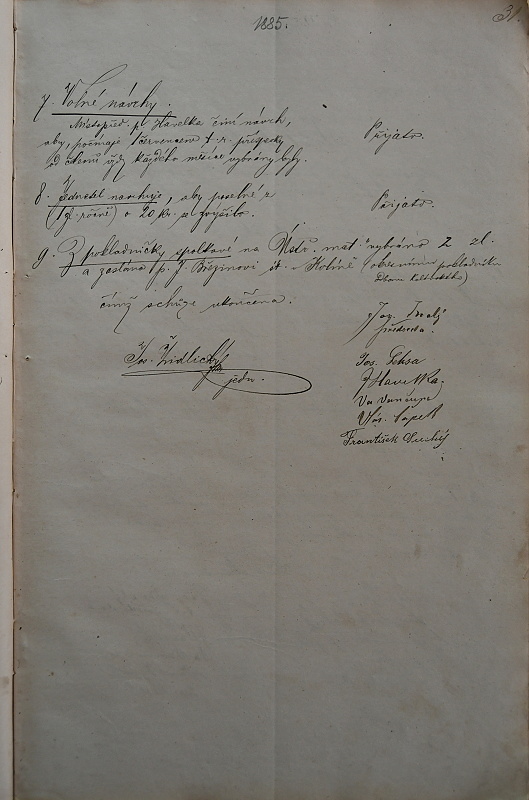 1885.
31
7. Volné návrhy.
Místopřed. p. Havelka činí návrh,
aby, počínaje červencem t. r. příspěvky
od členů vždy každého měsíce vybrány byly.
Přijato.
8. Jednatel navrhuje, aby poselné z
(1 zl. ročně) o 20 kr. se zvýšilo.
Přijato.
9. Z pokladničky spolkové na Ústř. mat. vybráno 2 zl.
a zasláno p. J. Březinovi st. v Kolíně
pokladníku
čímž schůze ukončena.
Jos. Židlický
jedn.
předseda.
Jos.
Havelka.
Čapek
František Suchý